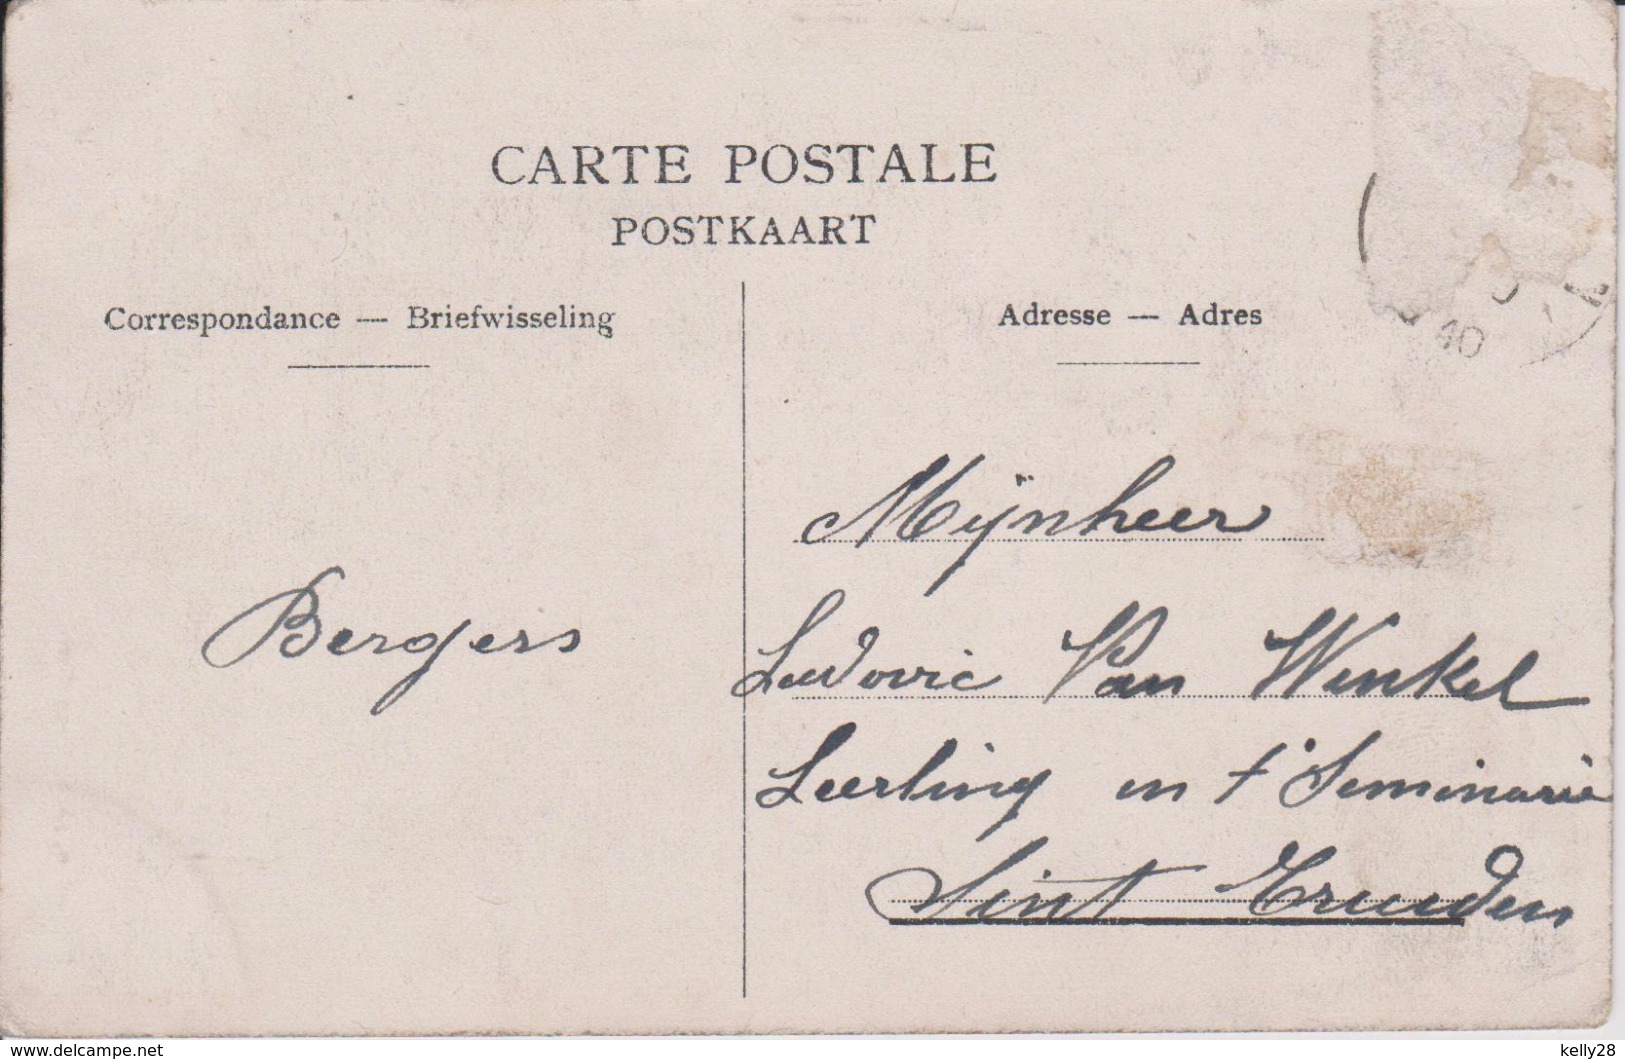 CARTE POSTALE
POSTKAART
Correspondance — Briefwisseling
Adresse — Adres
40
Bergers
Mijnheer
Ludovic Van Winkel
Leerling in t' Seminarie
Sint Truiden
www.delcampe.net
kelly28